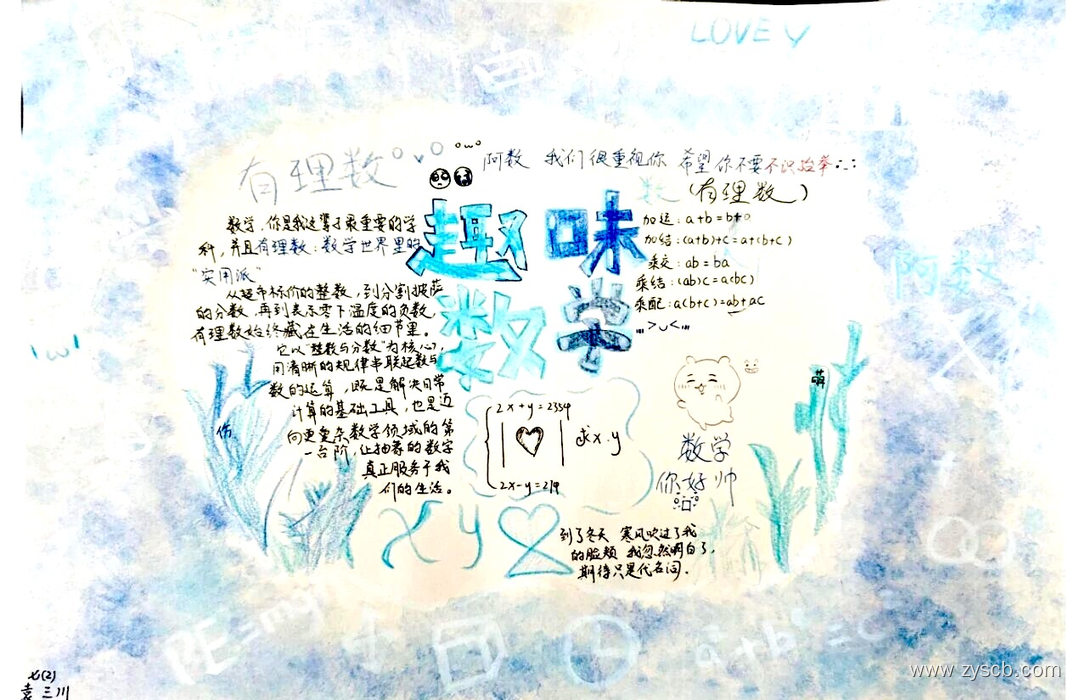 LOVE y
有理数
阿数 我们很重视你 希望你不要不识抬举
数(有理数)
趣味
数学
数学,你是我这辈子最重要的学
科,并且有理数:数学世界里的
“实用派”
从超市标价的整数,到分割披萨
的分数,再到表示零下温度的负数,
有理数始终藏在生活的细节里。
它以“整数与分数”为核心,
用清晰的规律串联起数与
数的运算,既是解决日常
计算的基础工具,也是迈
向更复杂数学领域的第
一台阶,让抽象的数字
真正服务于我
们的生活。
加运:a+b=b+a
加结:(a+b)+c=a+(b+c)
乘交:ab=ba
乘结:(ab)c=a(bc)
乘配:a(b+c)=ab+ac
,,,>u<,,,
阿数
'w'
萌
2x+y=2354
求x.y
2x-y=219
数学
你好帅
x y
到了冬天 寒风吹过了我
的脸颊 我忽然明白了,
期待只是代名词.
PE=mg
a²+b²=c²
七(2)
三川
www.zyscb.com